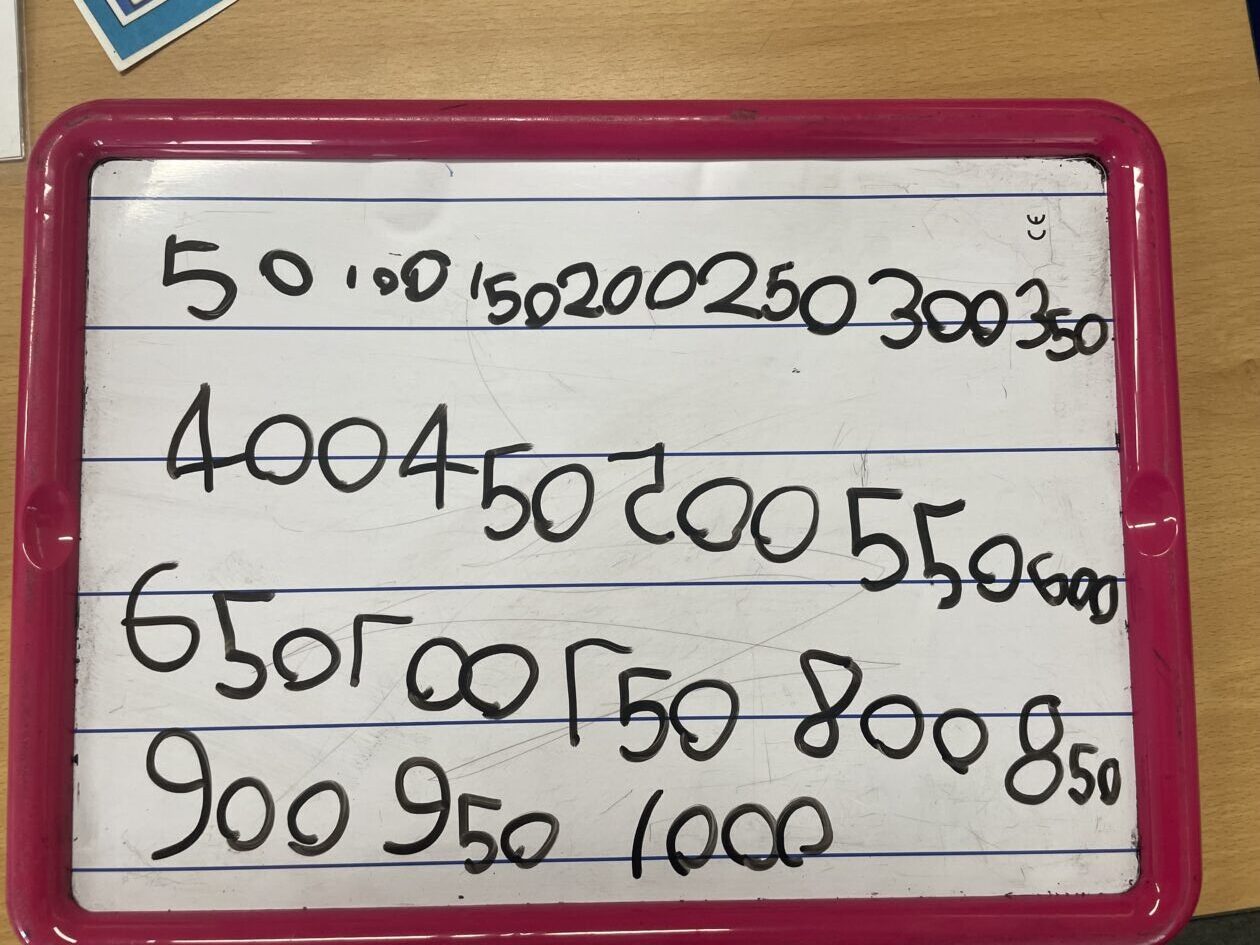 CE
50 100 150 200 250 300 350
400 450 500 550 600
650 700 750 800 850
900 950 1000